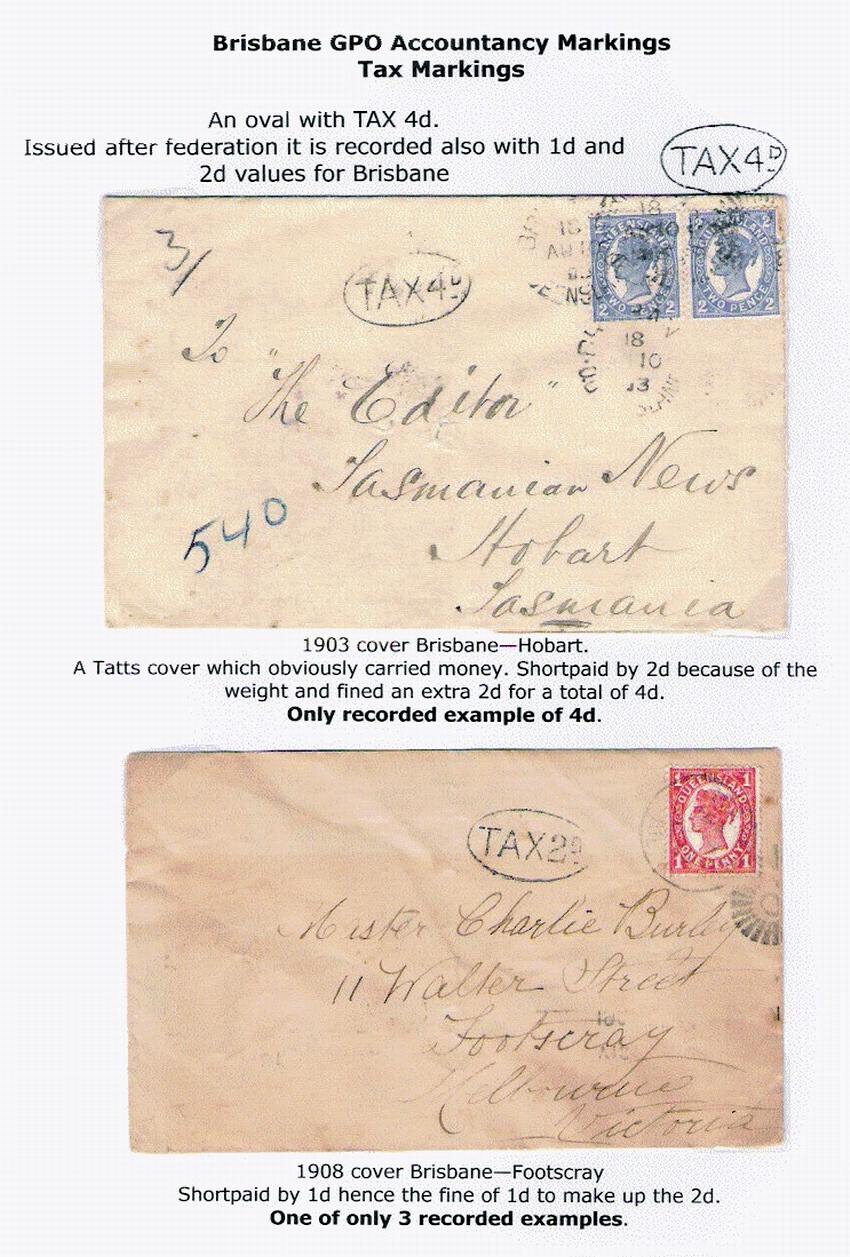 Brisbane GPO Accountancy Markings
Tax Markings
An oval with TAX 4d.
Issued after federation it is recorded also with 1d and
2d values for Brisbane
TAX4D
3/
TAX4D
QUEENSLAND
TWO PENCE
2 2
QUEENSLAND
TWO PENCE
2 2
18
10
To "The Editor"
Tasmanian News
Hobart
Tasmania
540
1903 cover Brisbane—Hobart.
A Tatts cover which obviously carried money. Shortpaid by 2d because of the
weight and fined an extra 2d for a total of 4d.
Only recorded example of 4d.
TAX2D
1 QUEENSLAND 1
1 ONE PENNY 1
Master Charlie Burley
11 Walter Street
Footscray
Melbourne
Victoria
1908 cover Brisbane—Footscray
Shortpaid by 1d hence the fine of 1d to make up the 2d.
One of only 3 recorded examples.